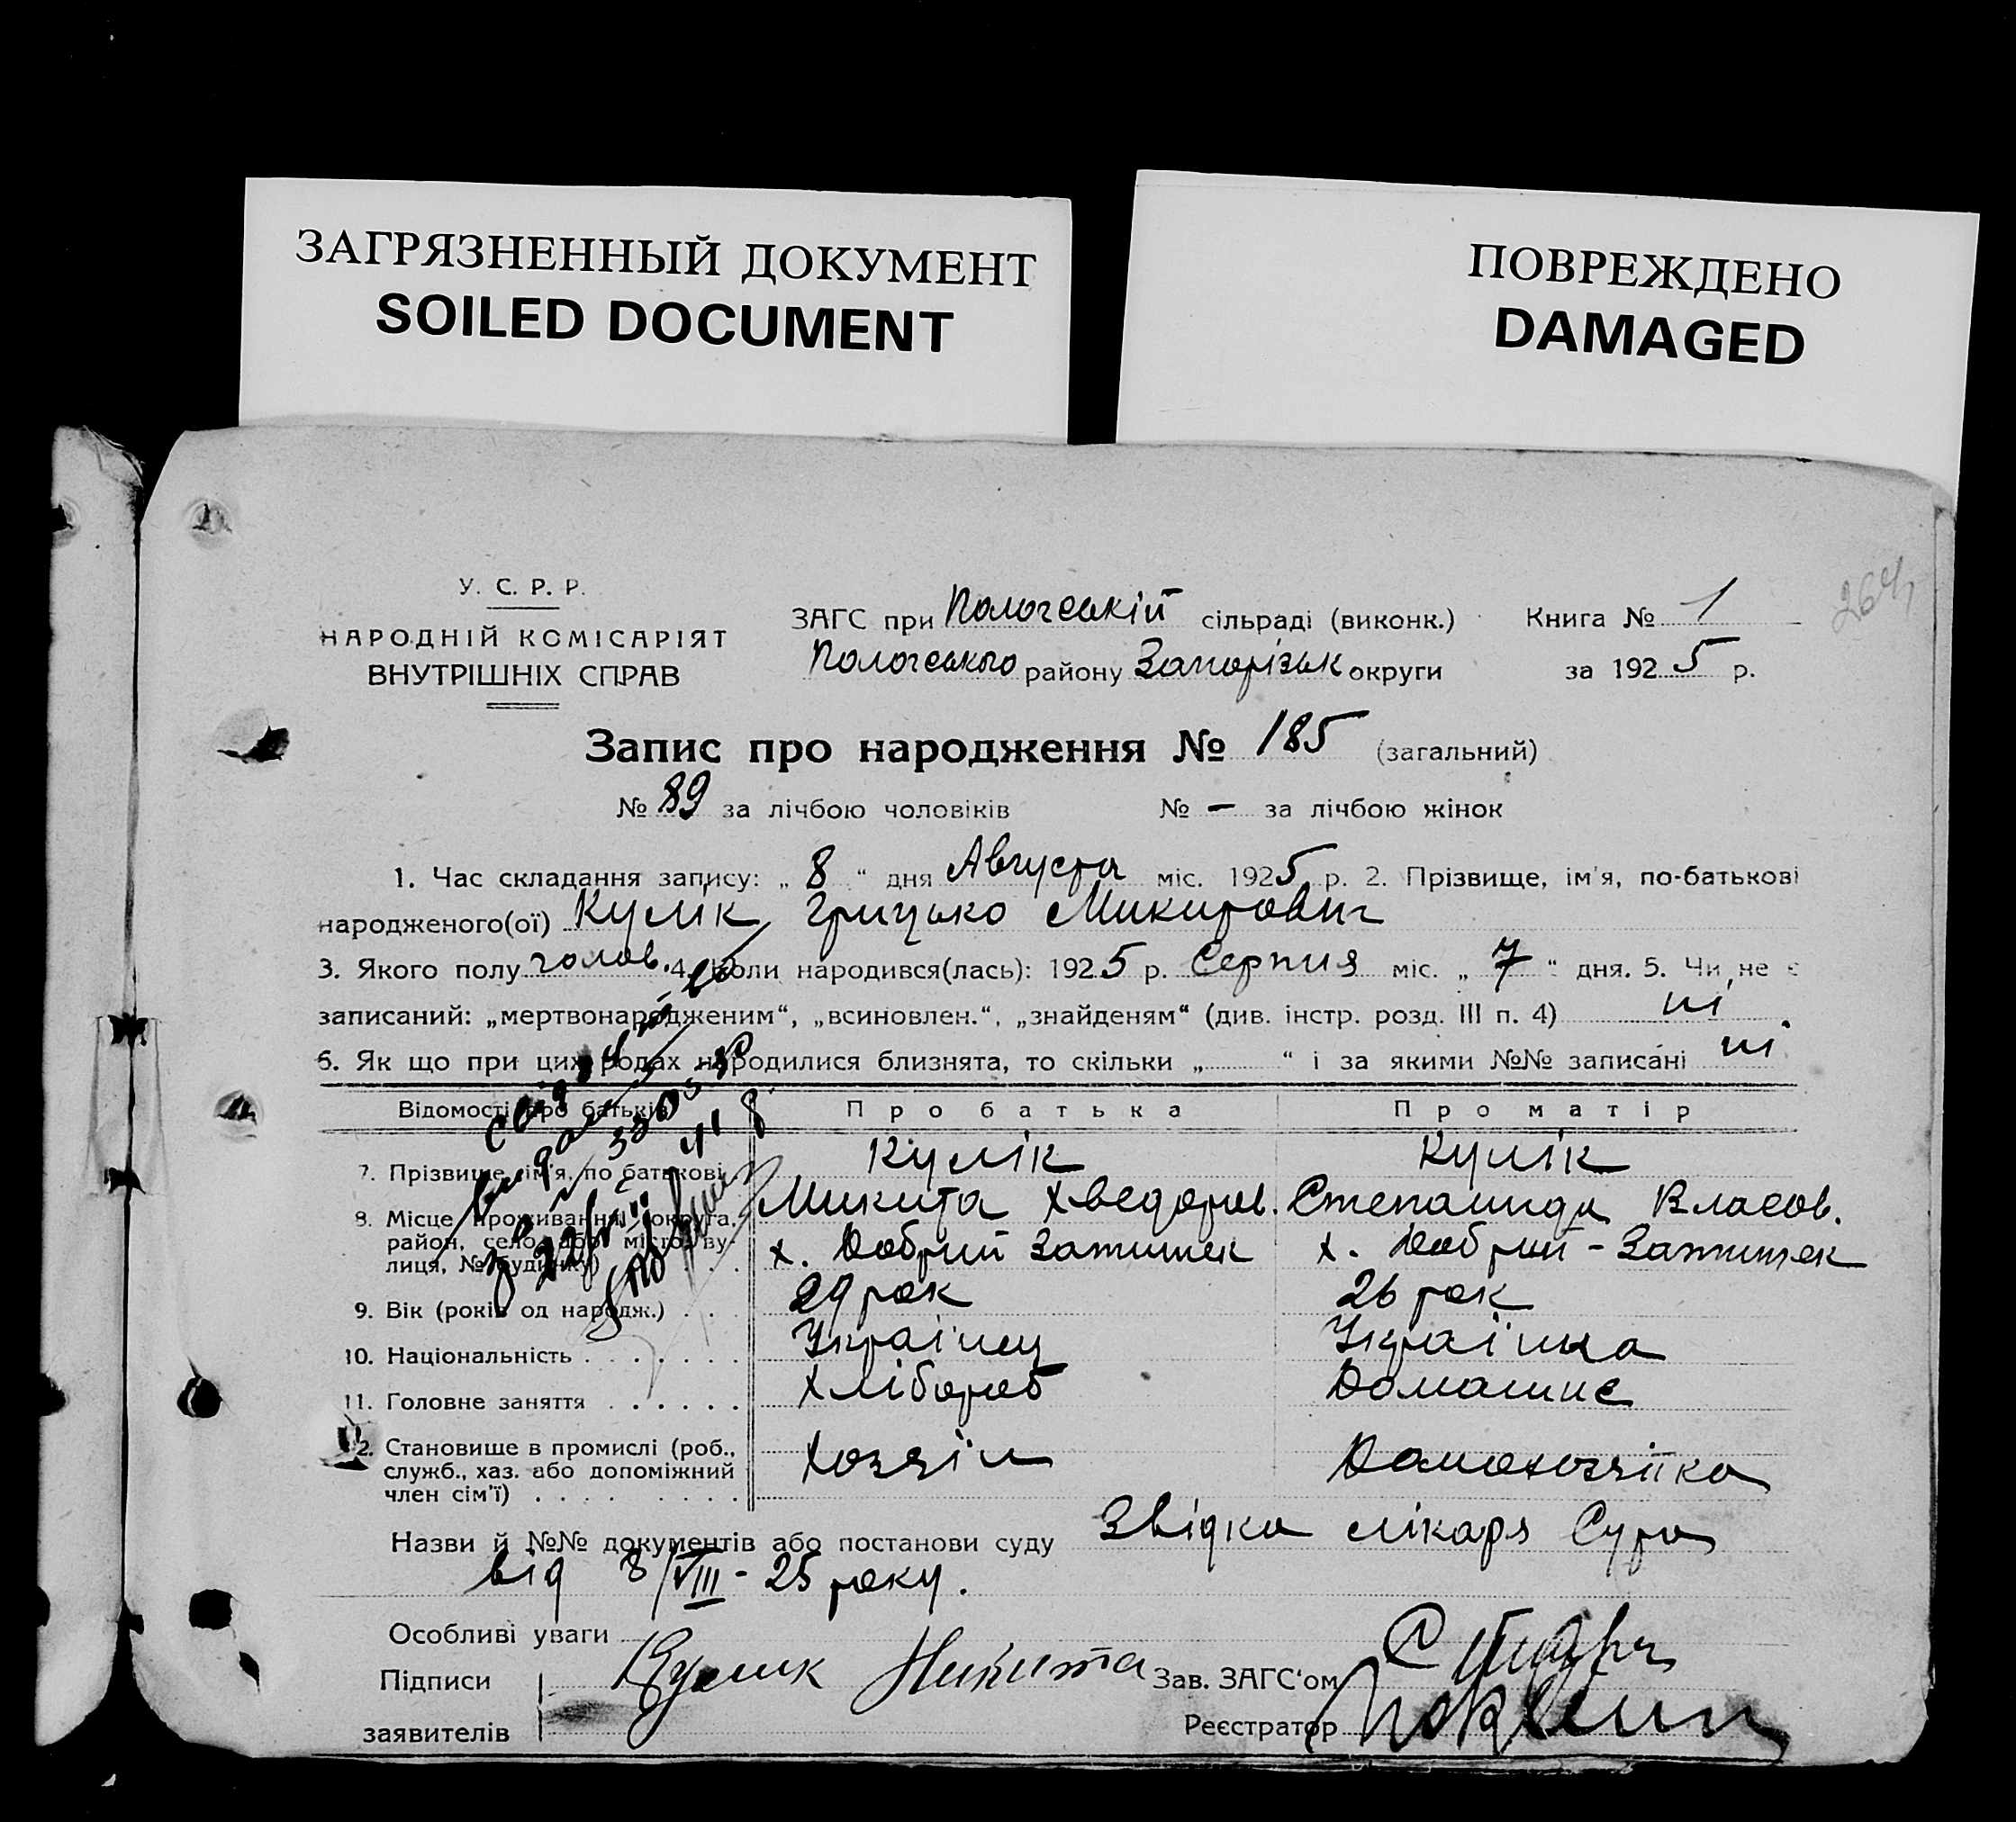 ЗАГРЯЗНЕННЫЙ ДОКУМЕНТ
SOILED DOCUMENT
ПОВРЕЖДЕНО
DAMAGED
У. С. Р. Р.
НАРОДНІЙ КОМІСАРІЯТ
ВНУТРІШНІХ СПРАВ
ЗАГС при Пологській сільраді (виконк.) Книга № 1
Пологського району Запорізьк округи за 1925 р.
264
Запис про народження № 185 (загальний)
№ 89 за лічбою чоловіків № — за лічбою жінок
1. Час складання запису: „ 8 “ дня Августа міс. 1925 р. 2. Прізвище, ім'я, по-батькові
народженого(ої) Кулік Грицько Микитович
3. Якого полу чолов. 4. Коли народився(лась): 1925 р. Серпня міс. „ 7 “ дня. 5. Чи не є
записаний: „мертвонародженим“, „всиновлен.“, „знайденям“ (див. інстр. розд. III п. 4) ні
6. Як що при цих родах народилися близнята, то скільки „ “ і за якими №№ записані ні
Відомості про батьків Про батька Про матір
7. Прізвище, ім'я, по батькові Кулік Кулік
Микита Хведоров. Степанида Власов.
8. Місце проживання (округа, район, село, або місто, вулиця, № будинку) х. Добрий Затишек х. Добрий - Затишек
9. Вік (років од народж.) . . . 29 рок 26 рок
10. Національність . . . . . . . Українец Українка
11. Головне заняття . . . . . . Хлібороб Домашнє
12. Становище в промислі (роб., служб., хаз. або допоміжний член сім'ї) . . . . . . . . Хозяін Домохозяйка
Назви й №№ документів або постанови суду Звідка лікаря Сура
від 8/VIII - 25 року.
Особливі уваги
Підписи Кулик Никита Зав. ЗАГС'ом
заявителів Реєстратор